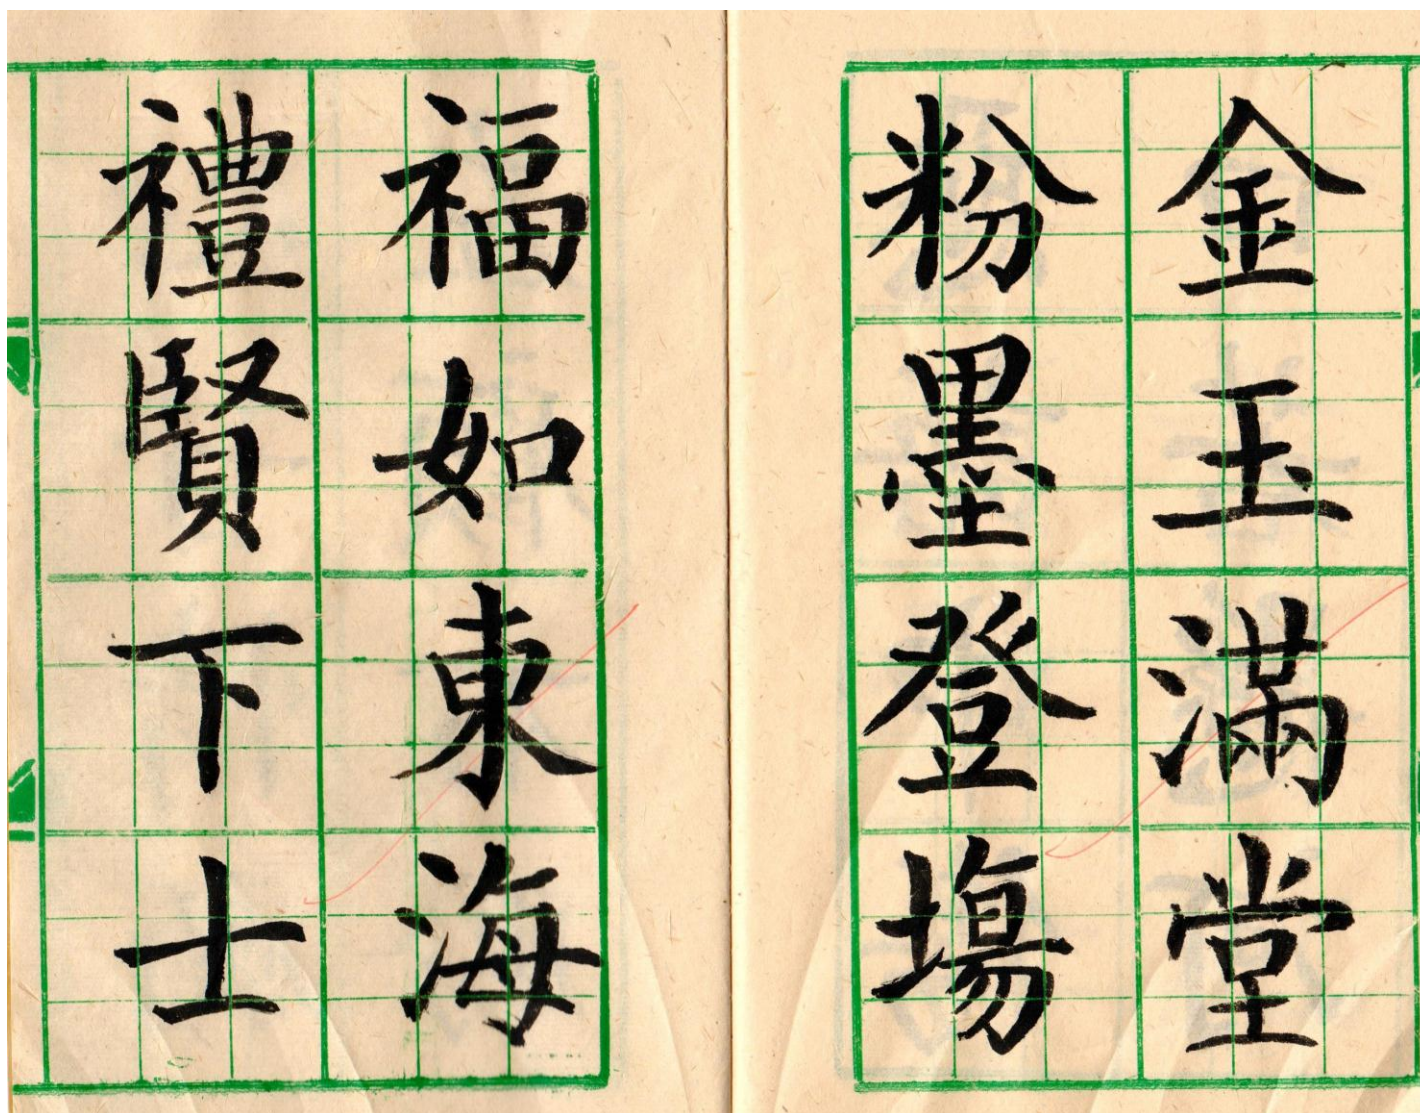 金玉滿堂
粉墨登場
福如東海
禮賢下士